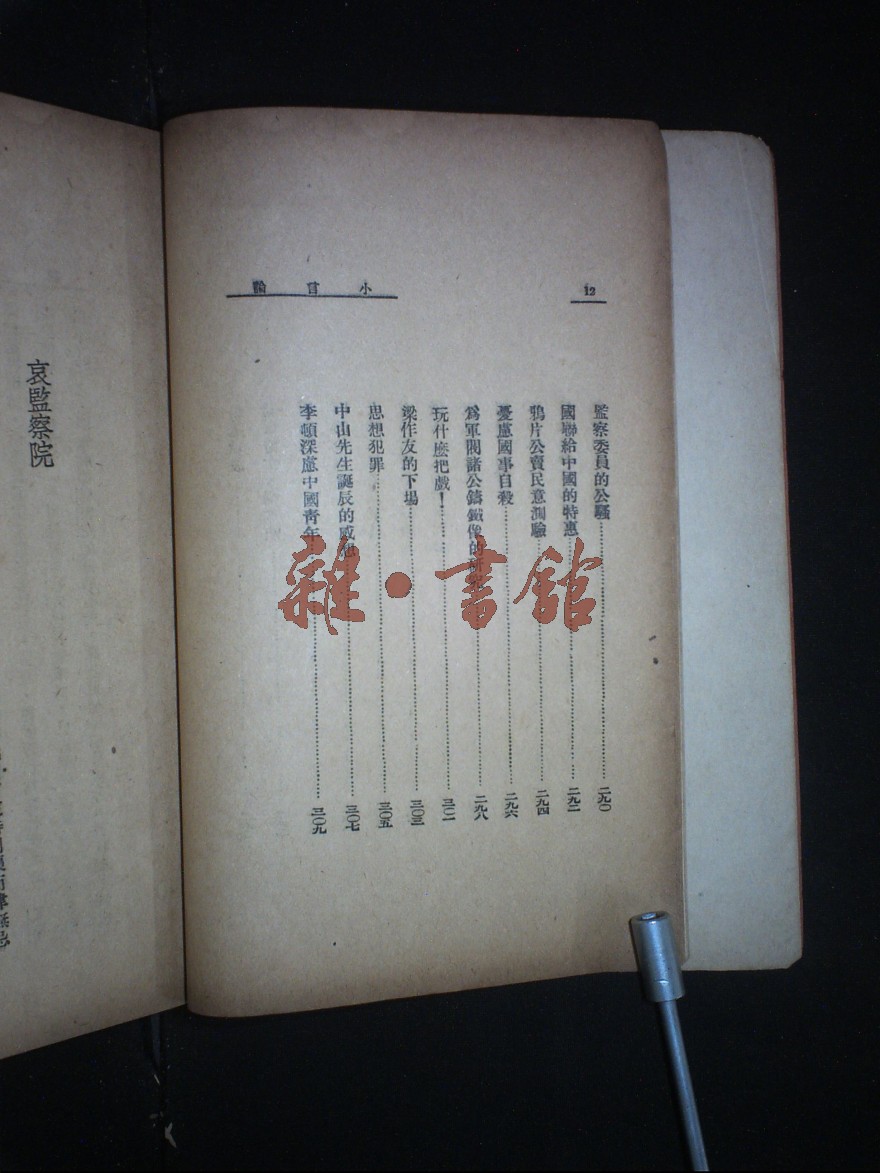 小言論
12
監察委員的公騷……二九〇
國聯給中國的特惠……二九二
鴉片公賣民意測驗……二九四
憂慮國事自殺……二九六
爲軍閥諸公鑄鐵像的研究……二九八
玩什麽把戲！……三〇一
梁作友的下場……三〇三
思想犯罪……三〇五
中山先生誕辰的感想……三〇七
李頓深慮中國青年……三〇九
雜·書館
哀監察院